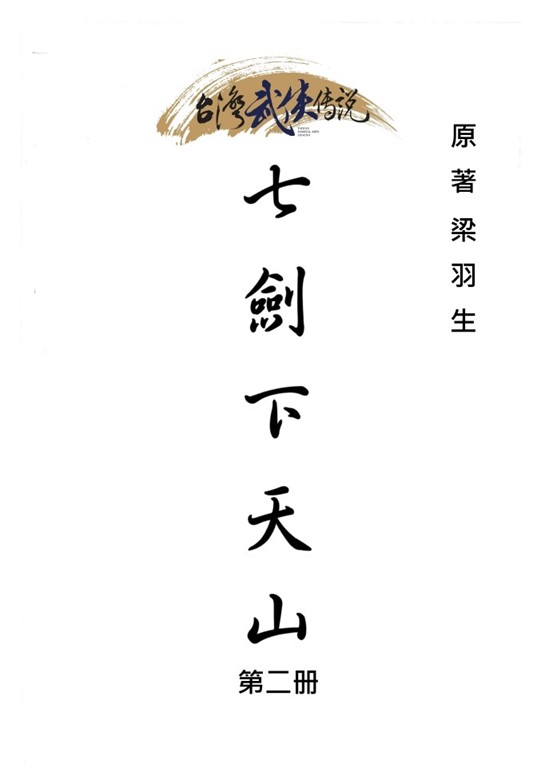 台灣武俠传説
原著梁羽生
七劍下天山
第二册